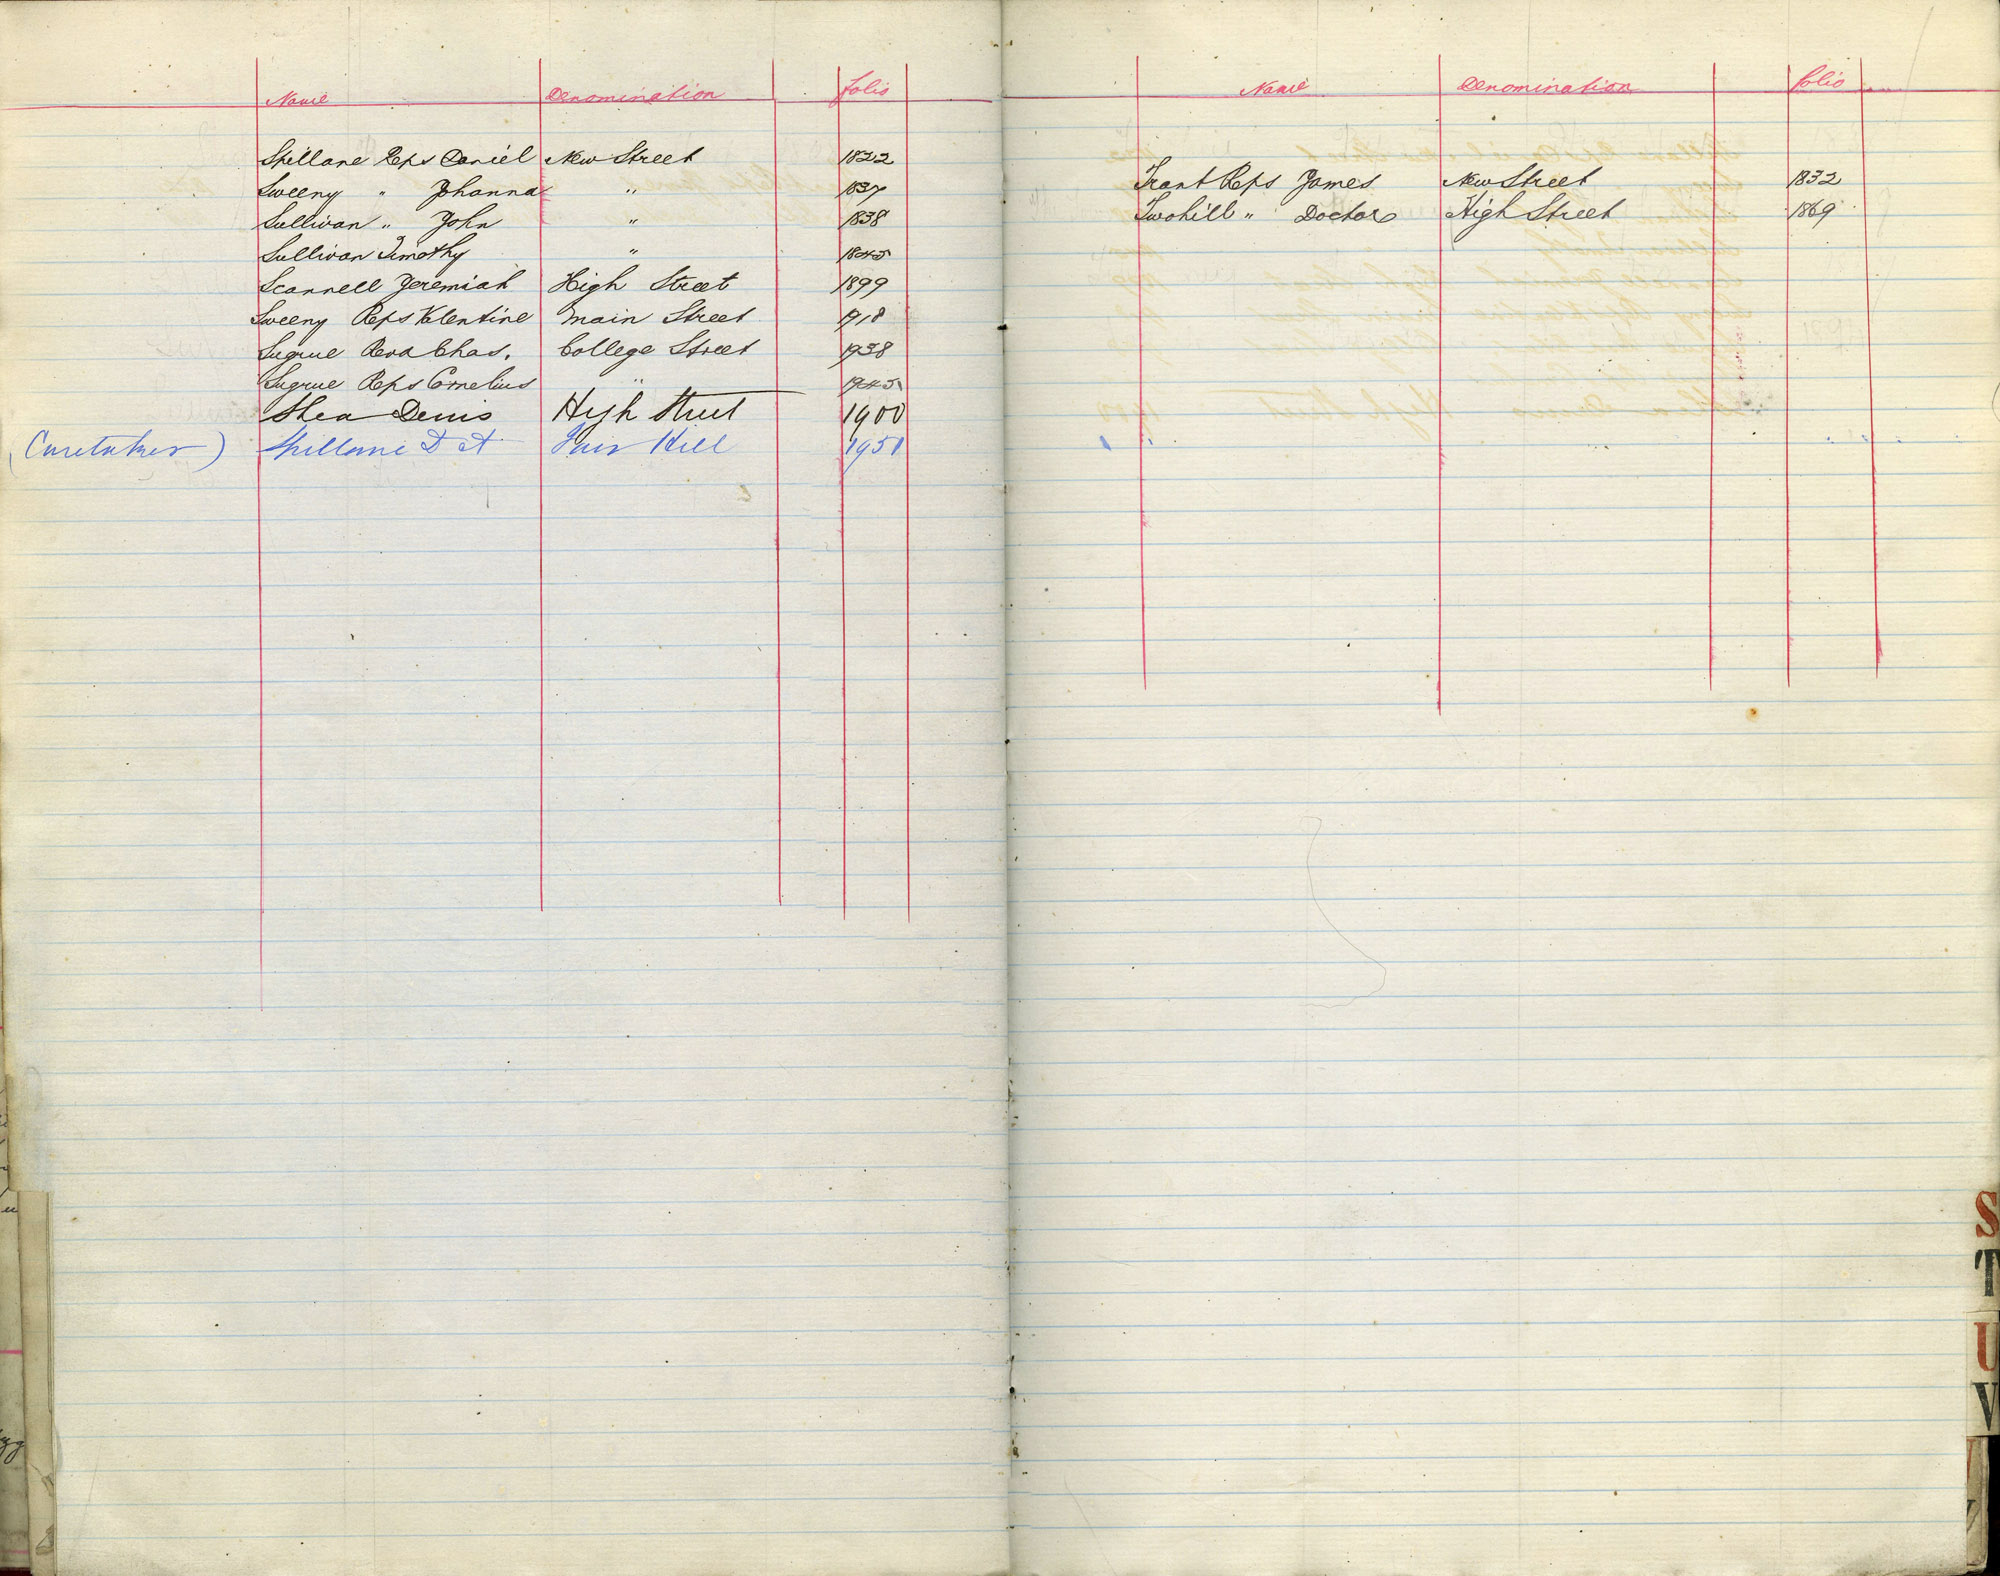 Name Denomination folio
Spillane Reps Daniel New Street 1822
Sweeny " Johanna " 1837
Sullivan " John " 1838
Sullivan Timothy " 1845
Scannell Jeremiah High Street 1899
Sweeny Reps Valentine Main Street 1918
Sugrue Revd Chas. College Street 1938
Sugrue Reps Cornelius " 1945
Shea Denis High Street 1900
(Caretaker) Spillane Fair Hill 1951
Name Denomination folio
Trant Reps James New Street 1832
Twohill " Doctor High Street 1869
S
T
U
V